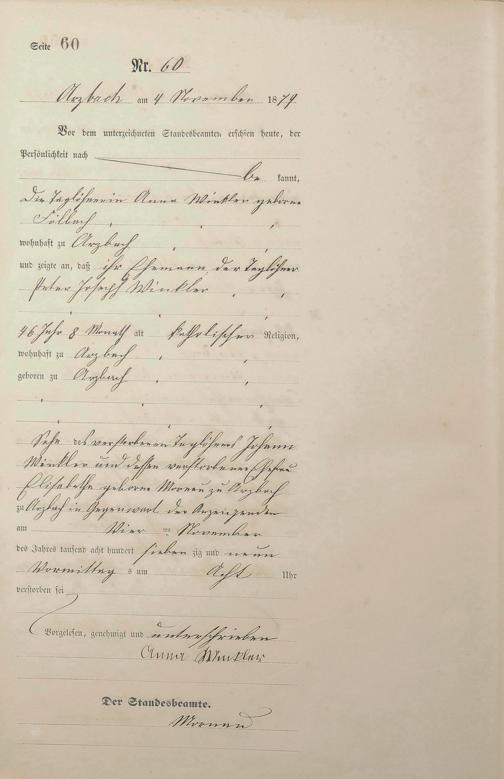 Seite 60
Nr. 60
Arzbach am 4 November 1879.
Vor dem unterzeichneten Standesbeamten erschien heute, der
Persönlichkeit nach
be kannt,
Die Taglöhnerin Anna Winkler geborene
wohnhaft zu Arzbach
und zeigte an, daß ihr Ehemann, der Taglöhner
Peter Joseph Winkler
46 Jahr 8 Monath alt katholischer Religion,
wohnhaft zu Arzbach
geboren zu Arzbach
Sohn des verstorbenen Taglöhners Johann
Winkler und dessen verstorbenen Ehefrau
Elisabetha geborne zu Arzbach
zu Arzbach in Gegenwart der Anzeigenden
am Vier ten November
des Jahres tausend acht hundert sieben zig und neun
Vormittag s um Acht Uhr
verstorben sei
Vorgelesen, genehmigt und unterschrieben
Anna Winkler
Der Standesbeamte.